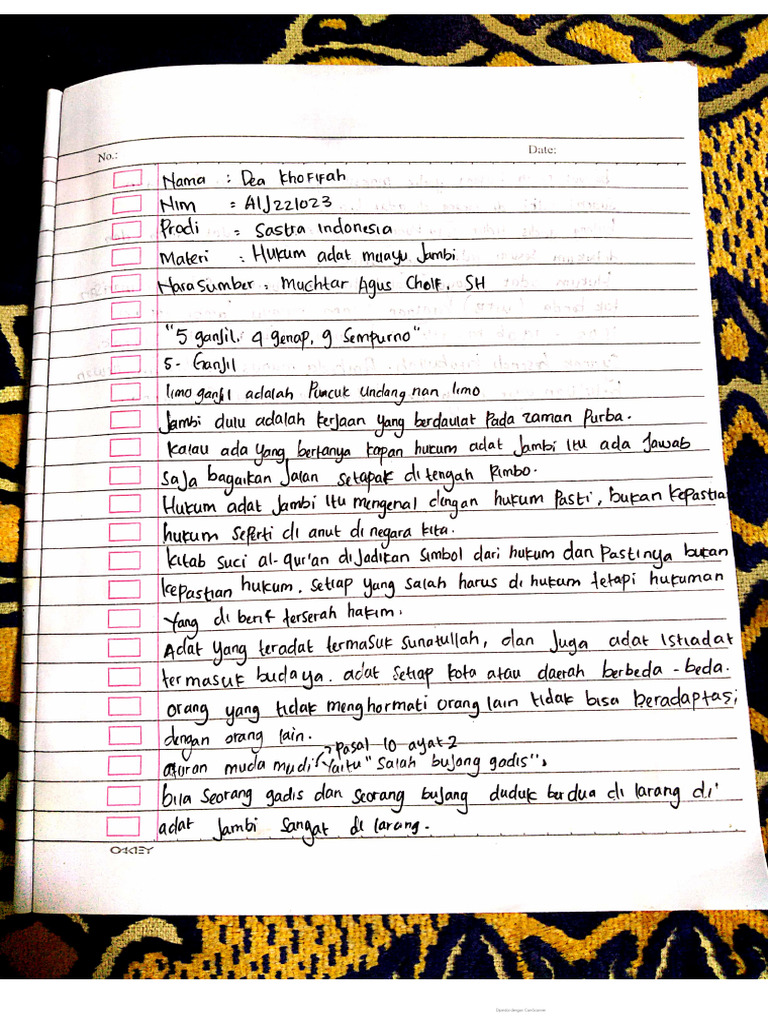 No.: Date:
Nama : Dea Khofifah
Nim : A1J221023
Prodi : Sastra Indonesia
Materi : Hukum adat melayu Jambi
Narasumber : Muchtar Agus Cholf. SH
"5 ganjil, 4 genap, 9 Sempurno"
5 - Ganjil
limo ganjil adalah Puncuk Undang nan limo
Jambi dulu adalah kerjaan yang berdaulat Pada zaman Purba.
Kalau ada yang bertanya kapan hukum adat Jambi itu ada Jawab
saja bagaikan Jalan setapak di tengah Rimbo.
Hukum adat Jambi itu mengenal dengan hukum Pasti, bukan kepastian
hukum seperti di anut di negara kita.
kitab suci al-qur'an dijadikan simbol dari hukum dan Pastinya bukan
kepastian hukum. setiap yang salah harus di hukum tetapi hukuman
Yang di beri terserah hakim.
Adat yang teradat termasuk sunatullah, dan Juga adat istiadat
termasuk budaya. adat setiap kota atau daerah berbeda-beda.
orang yang tidak menghormati orang lain tidak bisa Beradaptasi
dengan orang lain.
Pasal 10 ayat 2
aturan muda mudi yaitu "salah bujang gadis",
bila seorang gadis dan seorang bujang duduk berdua di larang di
adat Jambi sangat di larang.
OAKLEY
Dipindai dengan CamScanner